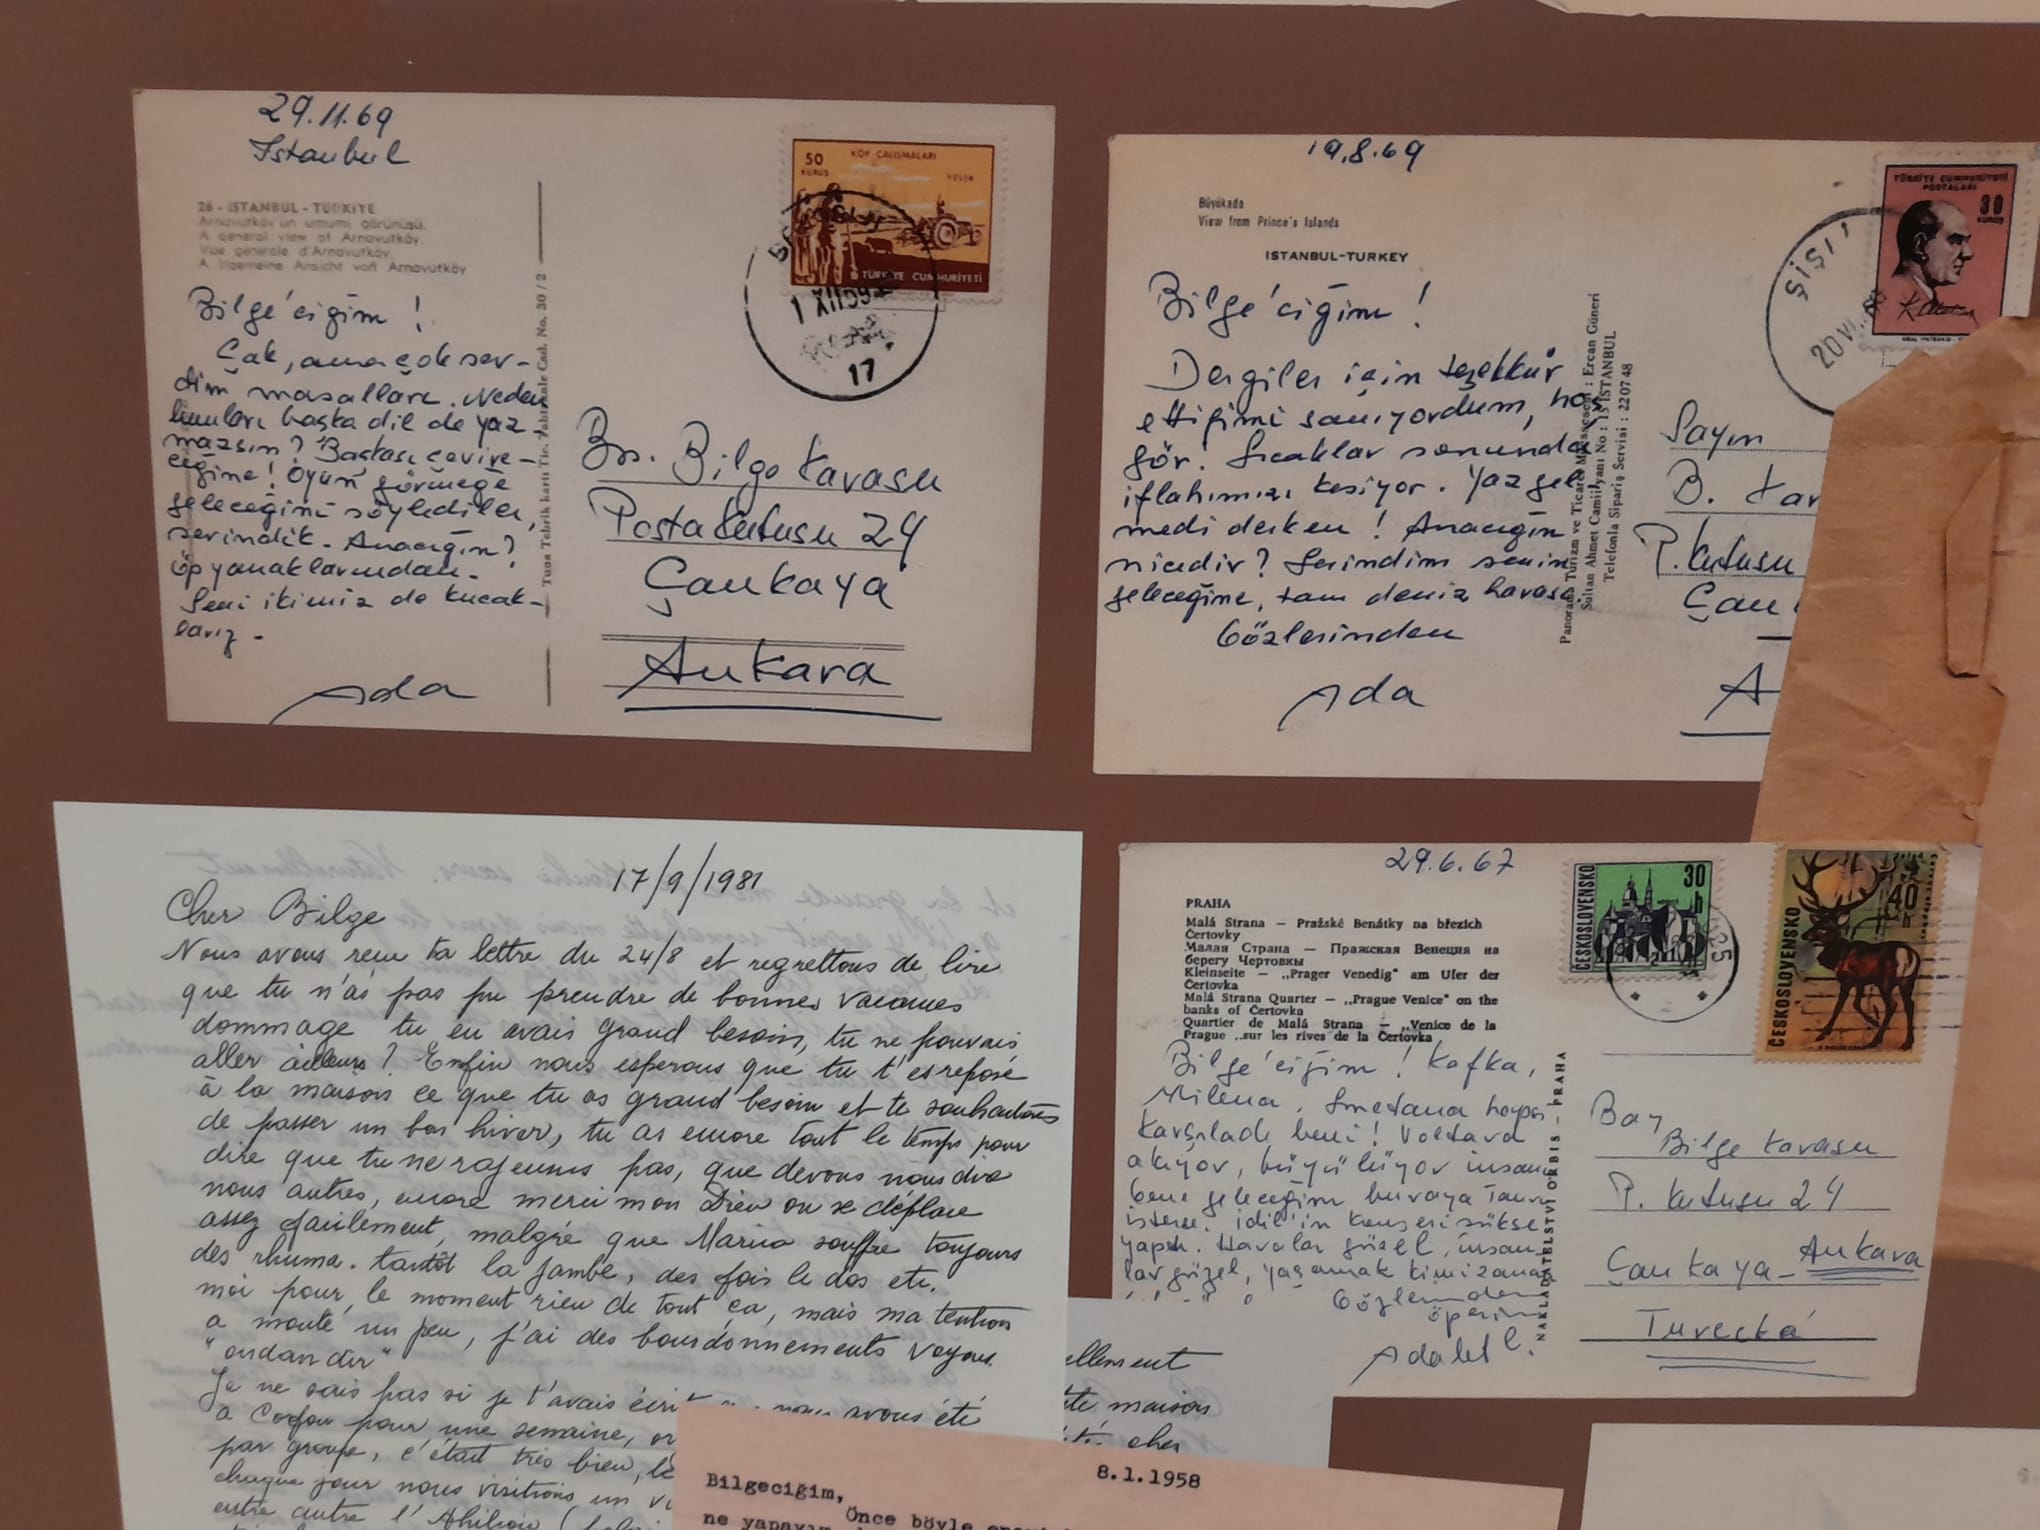 29.11.69
Istanbul
28 - İSTANBUL - TÜRKİYE
Arnavutköy'ün umumi görünüşü.
A general view of Arnavutköy.
Vue générale d'Arnavutköy.
Allgemeine Ansicht von Arnavutköy
50
KURUŞ
KÖY ÇALIŞMALARI
TÜRKİYE CUMHURİYETİ
17
Bilge'ciğim!
Çok, ama çok sev-
dim masalları. Neden
bunları başka dil de yaz-
mazsın? Başkası çevire-
ceğine! Oyun görmeğe
geleceğini söylediler,
sevindik. Anacığın?
Öp yanaklarından.
Seni ikimiz de kucak-
larız.
Ada
Tic. Cad. No. 30/2
Bn. Bilge Karasu
Posta Kutusu 24
Çankaya
Ankara
19.8.69
Büyükada
View from Prince's Islands
ISTANBUL-TURKEY
TÜRKİYE CUMHURİYETİ
POSTALARI
30
KURUŞ
ŞİŞLİ
Bilge'ciğim!
Dergiler için teşekkür
ettiğimi sanıyordum, hoş
gör! Sıcaklar sonunda
iflahımızı kesiyor. Yaz gel
medi derken! Anacığın
nicedir? Sevindim senin
geleceğine, tam deniz havası.
Gözlerinden
Ada
Panorama Turizm ve Ticaret Müessesesi : Ercan Güneri
Sultan Ahmet Camii Yanı No : 15 İSTANBUL
Telefonla Sipariş Servisi : 22 07 48
Sayın
B. Kar
P. Kutusu
Çan
A
17/9/1981
Cher Bilge
Nous avons reçu ta lettre du 24/8 et regrettons de lire
que tu n'as pas pu prendre de bonnes vacances
dommage tu en avais grand besoin, tu ne pouvais
aller ailleurs? Enfin nous esperons que tu t'es reposé
à la maison ce que tu as grand besoin et te souhaitons
de passer un bon hiver, tu as encore tout le temps pour
dire que tu ne rajeunis pas, que devons nous dire
nous autres, encore merci mon Dieu on se déplace
assez facilement, malgré que Marica souffre toujours
des rhuma. tantôt la jambe, des fois le dos etc.
moi pour le moment rien de tout ça, mais ma tention
a monté un peu, j'ai des bourdonnements voyons.
"ondandır"
Je ne sais pas si je t'avais écrit nous avons été
a Corfou pour une semaine, or
par groupe, c'était très bien, le
chaque jour nous visitions un vi
entre autre l'Ahilion
ellement
maison
cher
8.1.1958
Bilgeciğim,
Önce böyle
ne yapayım
29.6.67
PRAHA
Malá Strana — Pražské Benátky na březích
Čertovky
Малая Страна — Пражская Венеция на
берегу Чертовкы
Kleinseite — „Prager Venedig" am Ufer der
Čertovka
Malá Strana Quarter — „Prague Venice" on the
banks of Čertovka
Quartier de Malá Strana — „Venice de la
Prague" sur les rives de la Čertovka
ČESKOSLOVENSKO
30 h
ČESKOSLOVENSKO
40 h
Bilge'ciğim! Kafka,
Milena, Smetana hepsi
karşıladı beni! Voltava
akıyor, büyülüyor insanı
Gene geleceğim buraya Tanrı
isterse. İdil'in konseri sükse
yaptı. Havalar güzel, insan-
lar güzel, yaşamak
Gözlerinden
öperim
NAKLADATELSTVÍ ORBIS · PRAHA
Bay
Bilge Karasu
P. Kutusu 24
Çankaya - Ankara
Turecká